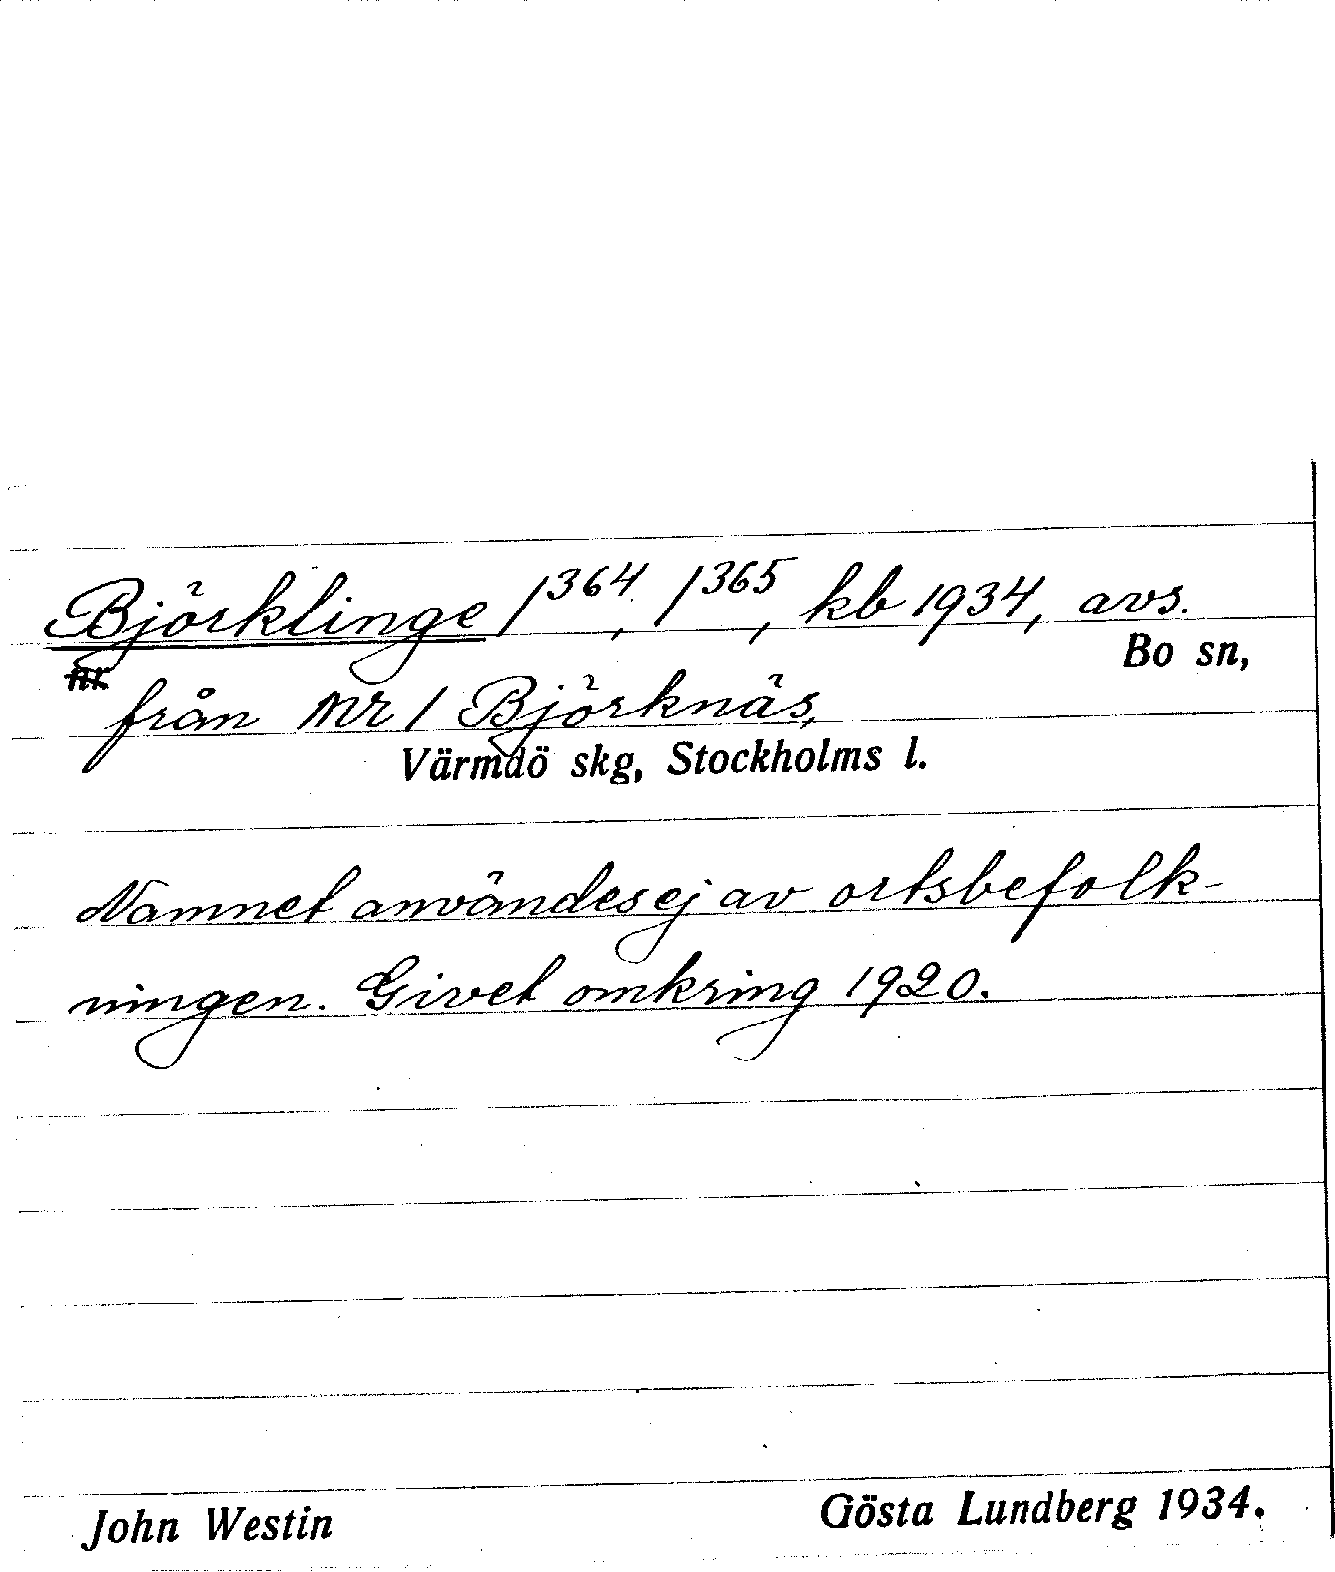 Björklinge 1³⁶⁴, 1³⁶⁵, kb 1934, avs.
Bo sn,
från nr 1 Björknäs,
Värmdö skg, Stockholms l.
Namnet användes ej av ortsbefolk-
ningen. Givet omkring 1920.
John Westin
Gösta Lundberg 1934.